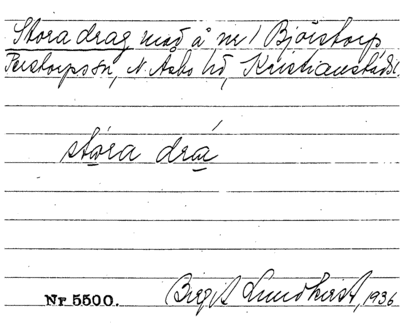 Stora drag mad å nr 1 Björstorp
Perstorps sn, N. Åsbo hd, Kristianstads l.
stora drá
Nr 5500.
Birgit Lundkvist, 1936